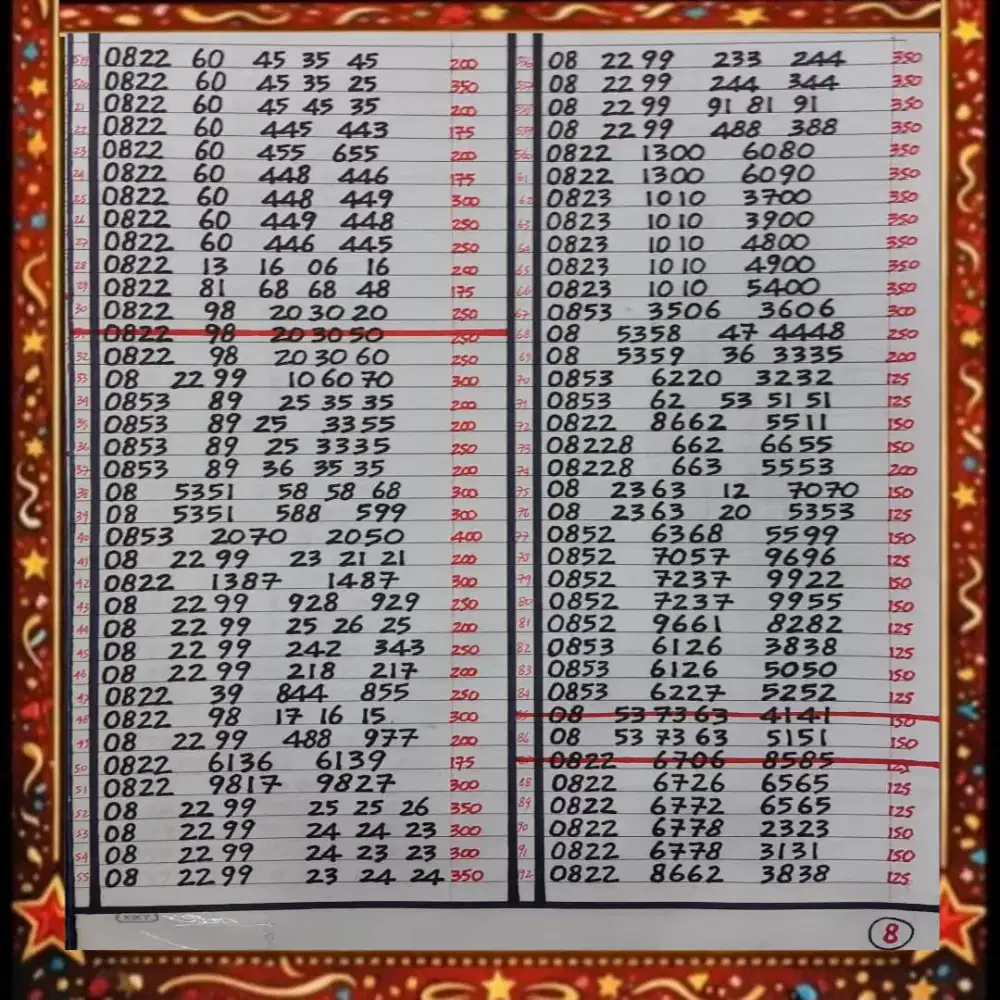 519 0822 60 45 35 45 200
520 0822 60 45 35 25 350
21 0822 60 45 45 35 200
22 0822 60 445 443 175
23 0822 60 455 655 200
24 0822 60 448 446 175
25 0822 60 448 449 300
26 0822 60 449 448 250
27 0822 60 446 445 250
28 0822 13 16 06 16 200
29 0822 81 68 68 48 175
30 0822 98 20 30 20 250
0822 98 20 30 50 250
32 0822 98 20 30 60 250
33 08 22 99 10 60 70 300
34 0853 89 25 35 35 200
35 0853 89 25 3355 200
36 0853 89 25 3335 250
37 0853 89 36 35 35 200
38 08 5351 58 58 68 300
39 08 5351 588 599 300
40 0853 2070 2050 400
41 08 22 99 23 21 21 200
42 0822 1387 1487 300
43 08 22 99 928 929 250
44 08 22 99 25 26 25 200
45 08 22 99 242 343 250
46 08 22 99 218 217 200
47 0822 39 844 855 250
48 0822 98 17 16 15 300
49 08 22 99 488 977 200
50 0822 6136 6139 175
51 0822 9817 9827 300
52 08 22 99 25 25 26 350
53 08 22 99 24 24 23 300
54 08 22 99 24 23 23 300
55 08 22 99 23 24 24 350
556 08 22 99 233 244 350
557 08 22 99 244 344 350
558 08 22 99 91 81 91 350
559 08 22 99 488 388 350
560 0822 1300 6080 350
61 0822 1300 6090 350
62 0823 10 10 3700 350
63 0823 10 10 3900 350
64 0823 10 10 4800 350
65 0823 10 10 4900 350
66 0823 10 10 5400 350
67 0853 3506 3606 300
68 08 5358 47 4448 250
69 08 5359 36 3335 200
70 0853 6220 3232 125
71 0853 62 53 51 51 125
72 0822 8662 5511 150
73 08228 662 6655 150
74 08228 663 5553 200
75 08 2363 12 7070 150
76 08 2363 20 5353 125
77 0852 6368 5599 150
78 0852 7057 9696 125
79 0852 7237 9922 150
80 0852 7237 9955 150
81 0852 9661 8282 125
82 0853 6126 3838 125
83 0853 6126 5050 150
84 0853 6227 5252 125
85 08 53 73 63 4141 150
86 08 53 73 63 5151 150
0822 6706 8585 125
88 0822 6726 6565 125
89 0822 6772 6565 125
90 0822 6778 2323 150
91 0822 6778 3131 150
92 0822 8662 3838 125
8